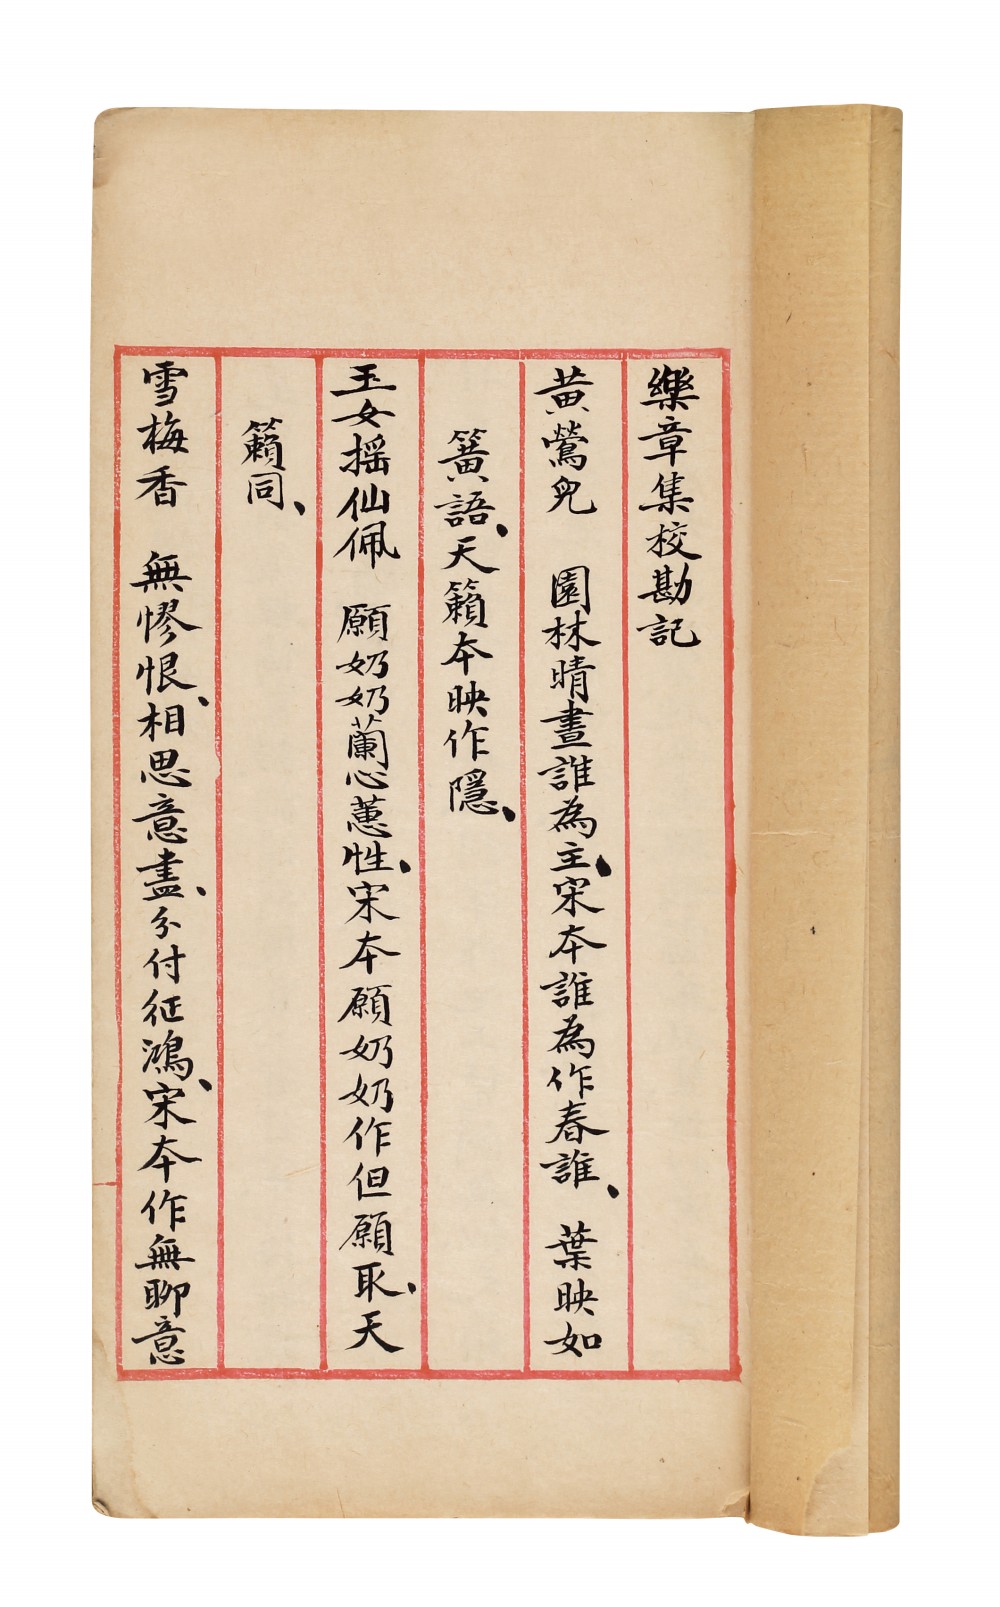 樂章集校勘記
黄鶯兒　園林晴晝誰為主、宋本誰為作春誰、　葉映如
簧語、天籟本映作隱、
玉女摇仙佩　願奶奶蘭心蕙性、宋本願奶奶作但願取、天
籟同、
雪梅香　無憀恨、相思意盡、分付征鴻、宋本作無聊意